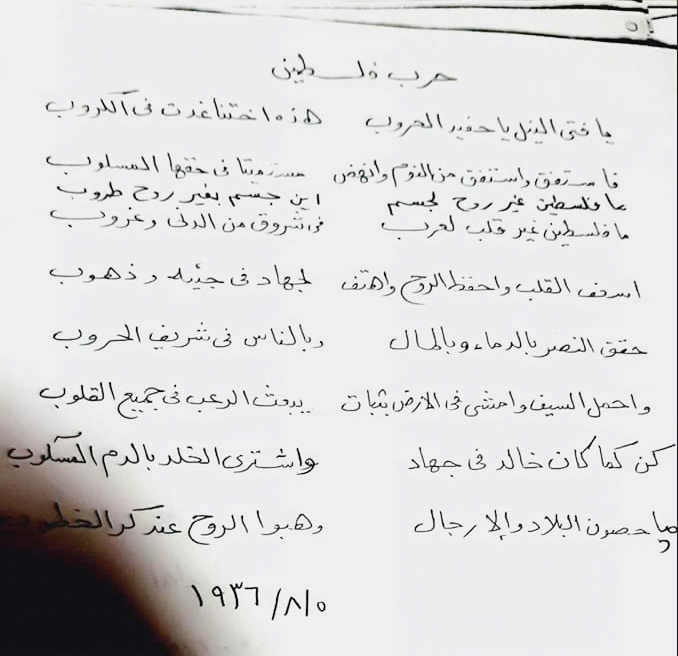 حرب فلسطين
يا فتى النيل يا حفيد العروب هذه اختنا غدت فى الكروب
فاستفق واستفق من النوم وانهض مستميتا فى حقها المسلوب
ما فلسطين غير روح لجسم اين جسم بغير روح طروب
ما فلسطين غير قلب لعرب فى شروق من الدنى وغروب
اسعف القلب واحفظ الروح واهتف لجهاد فى جيئه وذهوب
حقق النصر بالدماء وبالمال وبالناس فى شريف الحروب
واحمل السيف وامشى فى الارض بثبات يبعث الرعب فى جميع القلوب
كن كما كان خالد فى جهاد واشترى الخلد بالدم المسكوب
ما حصون البلاد والا رجال وهبوا الروح عند كر الخطوب
١٩٣٦/٨/٥